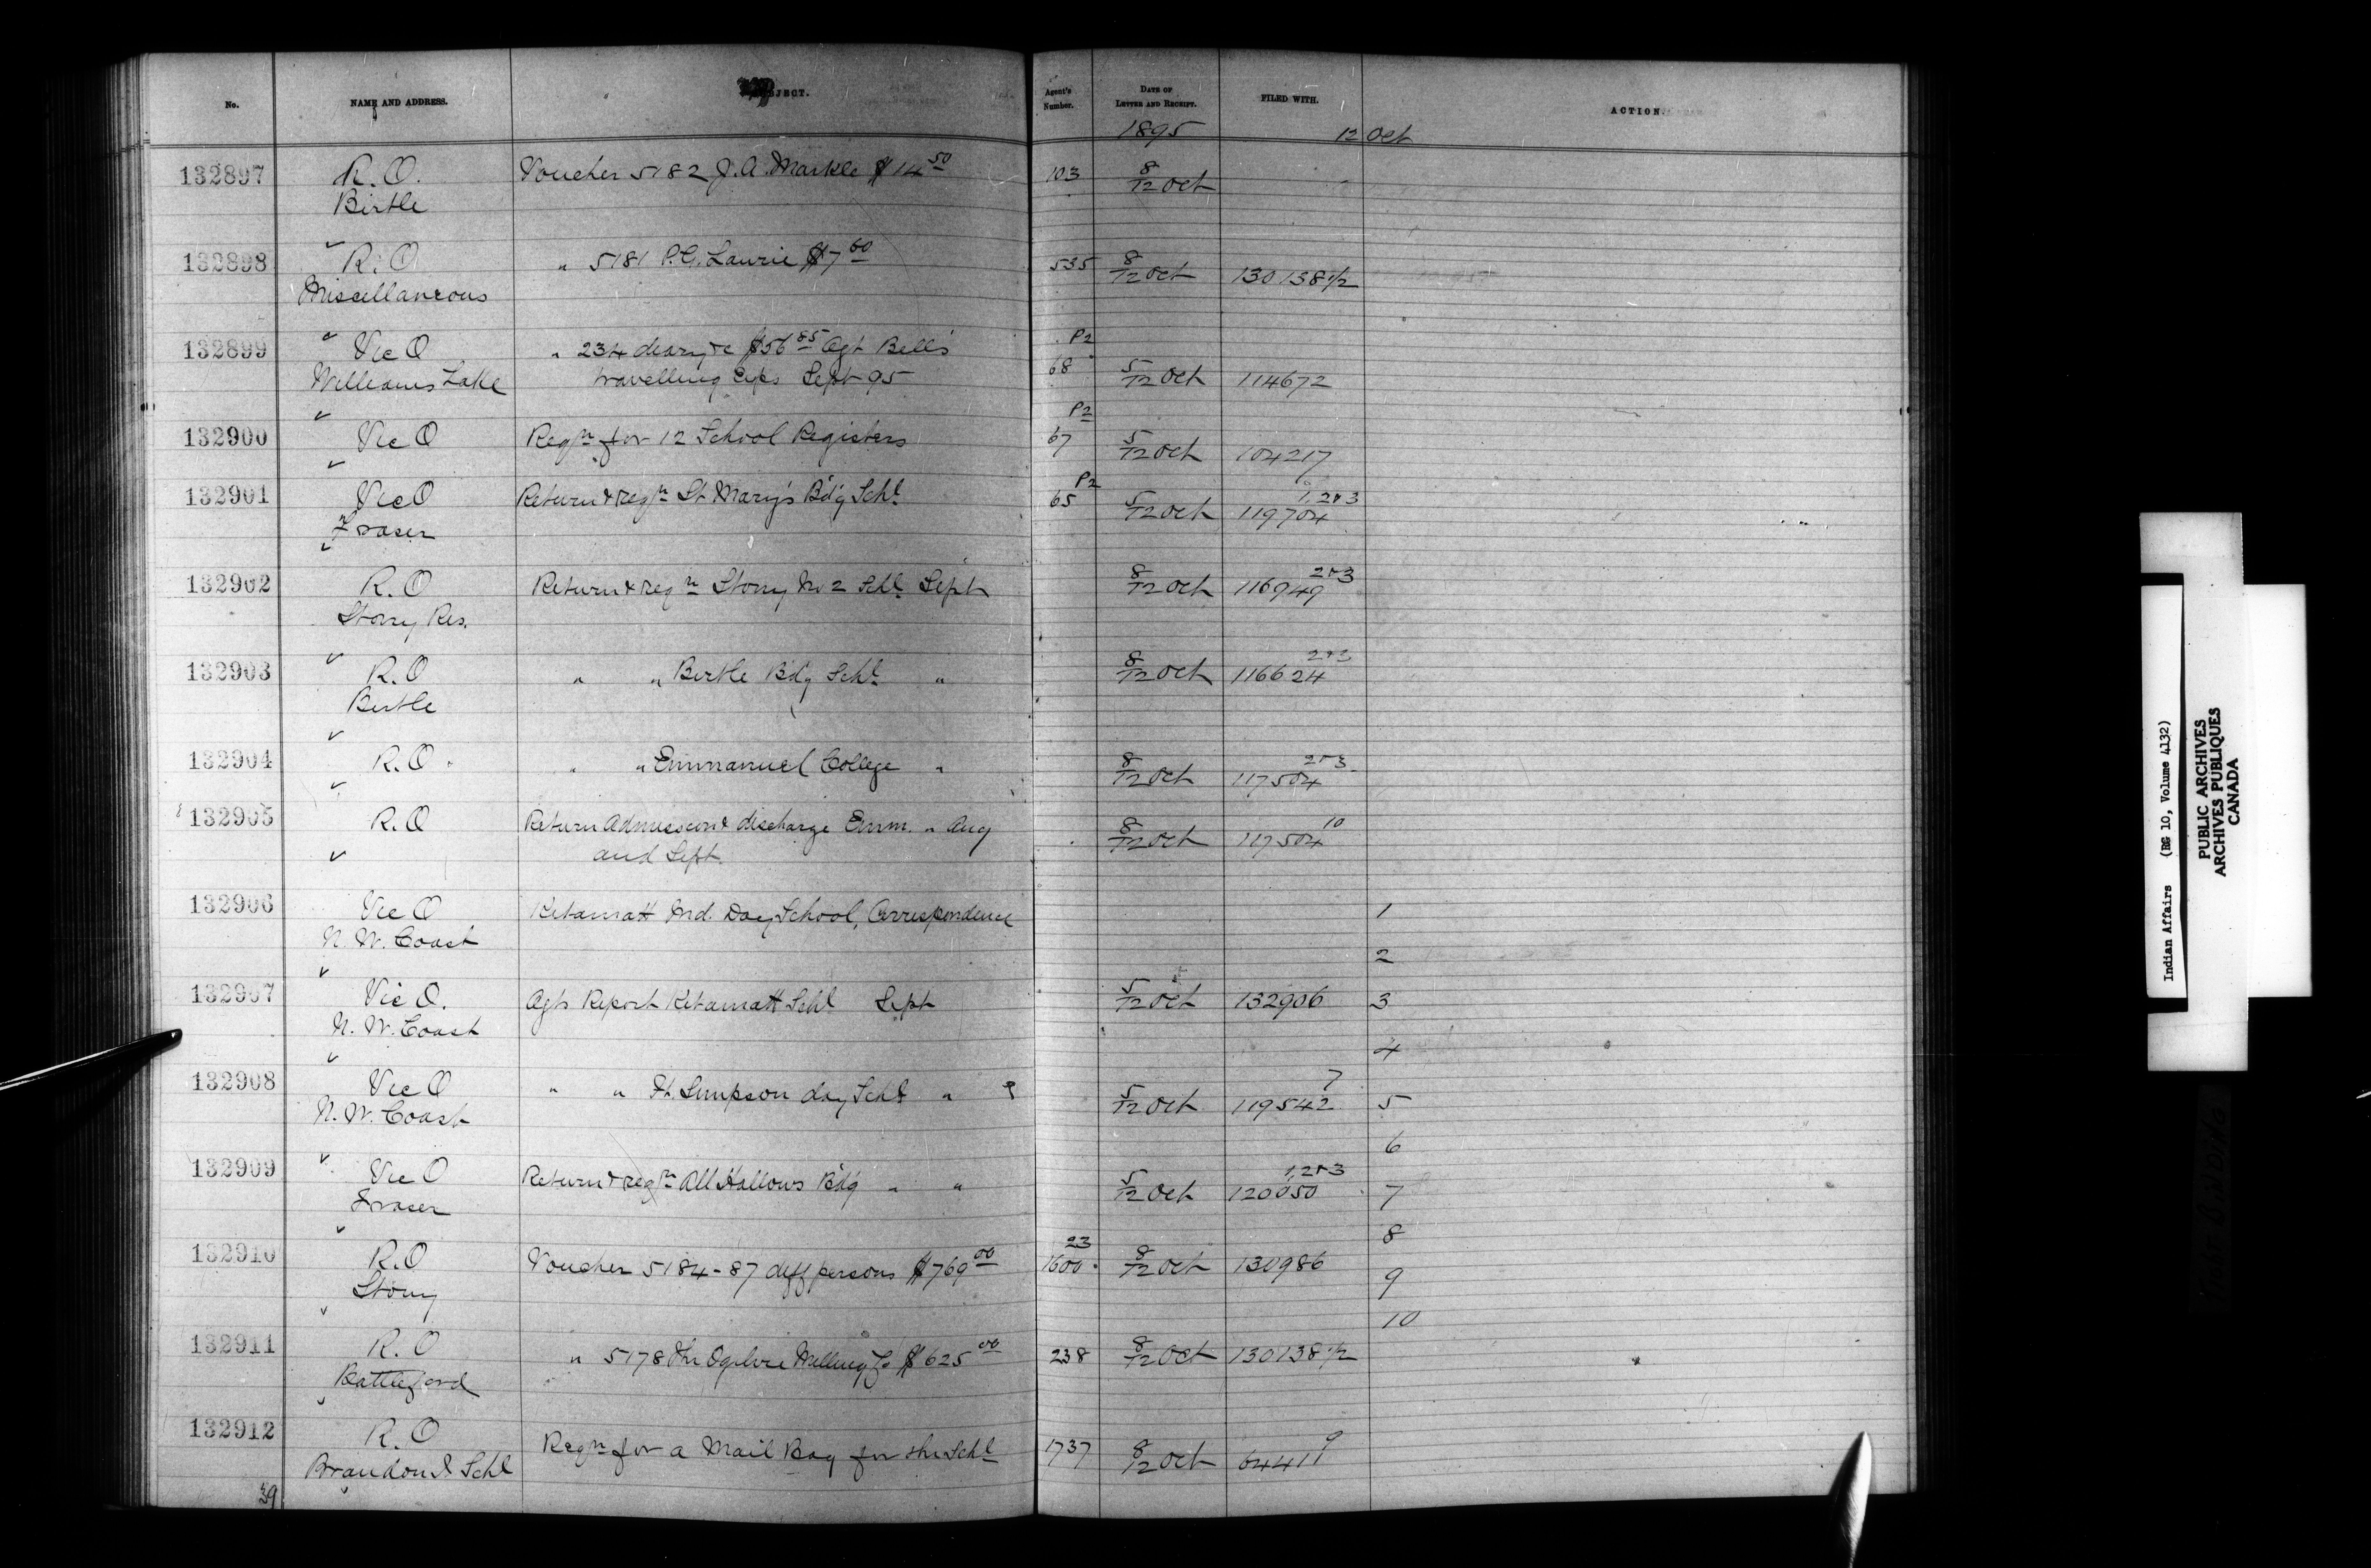 No. NAME AND ADDRESS. SUBJECT. Agent's Number. DATE OF LETTER AND RECEIPT. FILED WITH. ACTION.
1895 12 Oct
132897 R.O. Voucher 5182 J.A. Markle $14 50 103 8/12 Oct
Birtle
132898 R.O " 5181 P.G. Laurie $7 00 535 8/12 Oct 130138 1/2
Miscellaneous
132899 Vic O " 234 deary &c $56 85 Agt Bell's P2
Williams Lake travelling exps Sept 95 68 5/12 Oct 114672
132900 Vic O Reqn for 12 School Registers P2 67 5/12 Oct 104217
132901 Vic O Return & reqn St Mary's Bdg Schl P2 65 5/12 Oct 119704 1,2&3
Fraser
132902 R.O Return & reqn Stony No 2 Schl Sept 8/12 Oct 116949 2&3
Stony Res.
132903 R.O " " Birtle Bdg Schl " 8/12 Oct 116624 2&3
Birtle
132904 R.O " " Emmanuel College " 8/12 Oct 117504 2&3
132905 R.O Return Admission & discharge Emm. " Aug 8/12 Oct 117504 10
and Sept.
132906 Vic O Kitamatt Ind. Day School, Correspondence 1
N. W. Coast 2
132907 Vic O. Agts Report Kitamatt Schl Sept 5/12 Oct 132906 3
N. W. Coast 4
132908 Vic O " " Ft. Simpson day Schl " 5/12 Oct 119542 7 5
N. W. Coast 6
132909 Vic O Return & reqn All Hallows Bdg " " 5/12 Oct 120050 1,2&3 7
Fraser 8
132910 R.O Voucher 5184-87 diff persons $769 00 23 1600 8/12 Oct 130986 9
Stony 10
132911 R.O " 5178 The Ogilvie Milling Co $625 00 238 8/12 Oct 130138 1/2
Battleford
132912 R.O Reqn for a Mail Bag for the Schl 1737 8/12 Oct 64411 9
Brandon I Schl
39
Indian Affairs (RG 10, Volume 4132)
PUBLIC ARCHIVES
ARCHIVES PUBLIQUES
CANADA